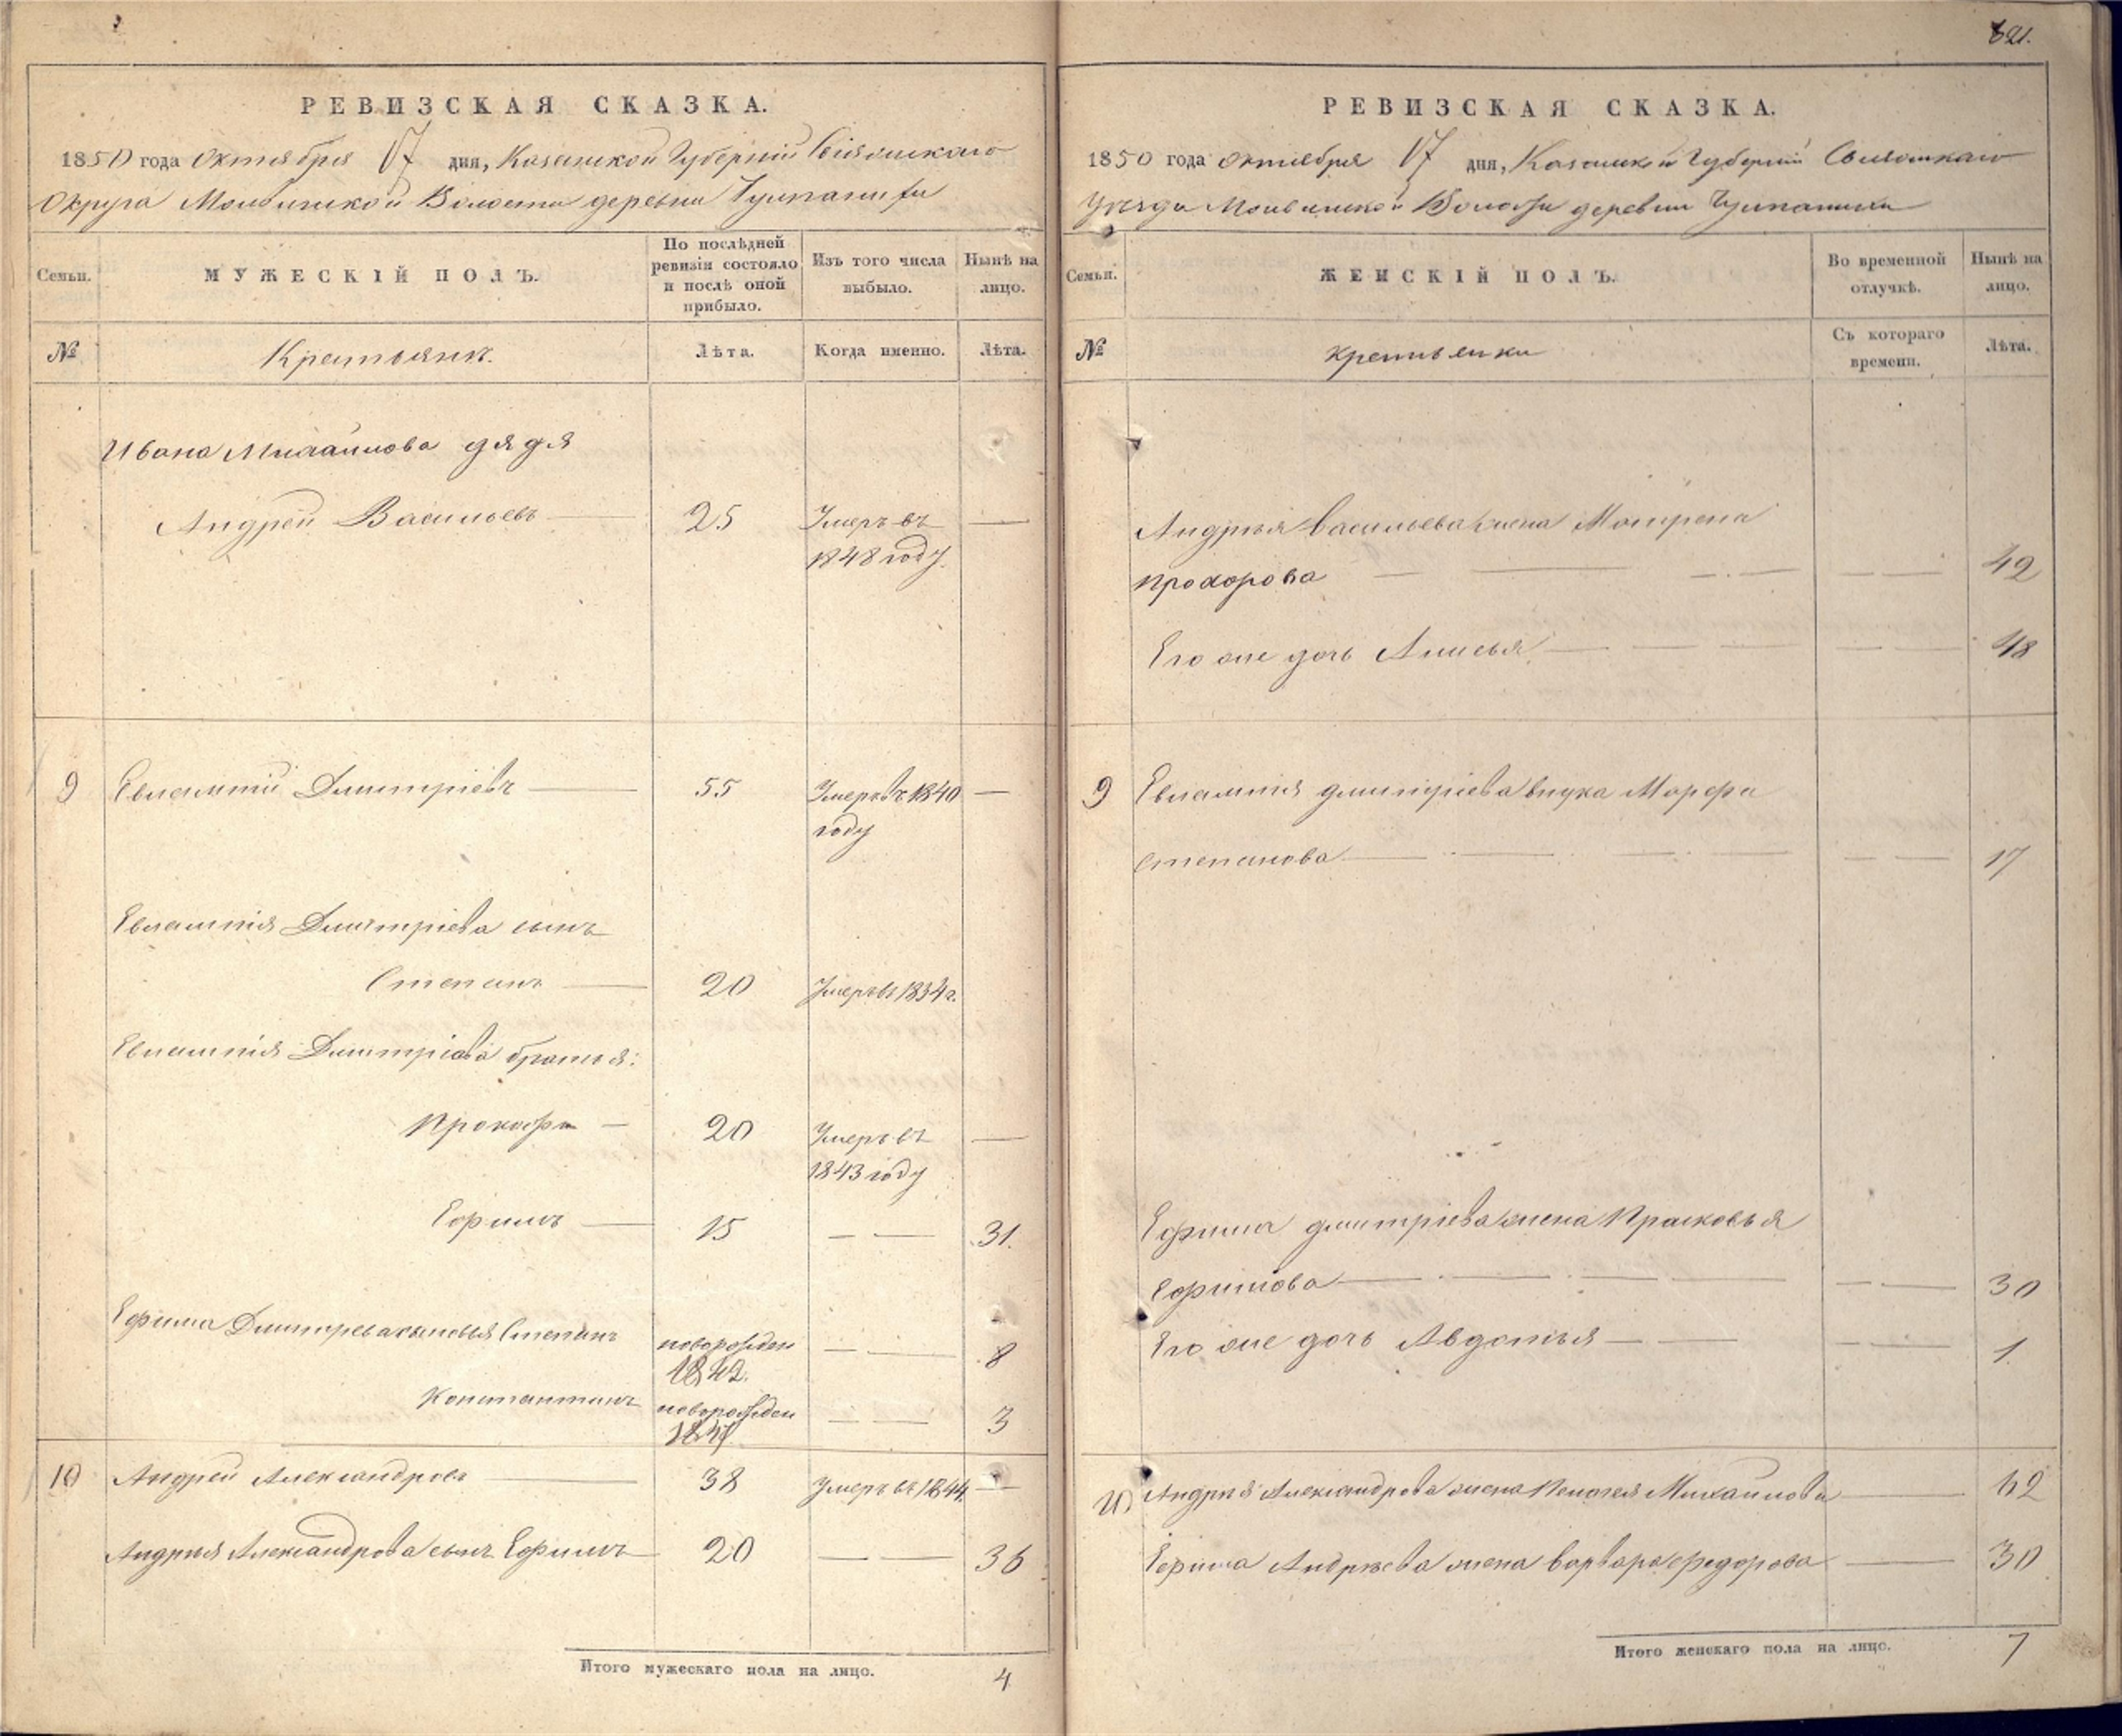 РЕВИЗСКАЯ СКАЗКА.
1850 года Октября 17 дня, Казанской Губернiи Свiяжскаго
Округа Волости деревни
Семьи.
МУЖЕСКIЙ ПОЛЪ.
По послѣдней ревизiи состояло и послѣ оной прибыло.
Изъ того числа выбыло.
Нынѣ на лицо.
№
Крестьянъ.
Лѣта.
Когда именно.
Лѣта.
Ивана Михайлова дядя
Андрей Васильевъ 25 Умеръ въ
1848 году.
9 Евлампiй Дмитрiевъ 55 Умеръ въ 1840
году
Евлампiя Дмитрiева сынъ
Степанъ 20 Умеръ въ 1834 г.
Евлампiя Дмитрiева братья:
Прокофiй 20 Умеръ въ
1843 году
Ефимъ 15 31.
Ефима Дмитрева сыновья Степанъ новорожден 8
1842.
Константинъ новорожден 3
1847
10 Андрей Александровъ 38 Умеръ въ 1844
Андрея Александрова сынъ Ефимъ 20 36
Итого мужескаго пола на лицо. 4
621.
РЕВИЗСКАЯ СКАЗКА.
1850 года октября 17 дня, Казанской Губернiи Свiяжскаго
Уѣзда Волости деревни
Семьи.
ЖЕНСКIЙ ПОЛЪ.
Во временной отлучкѣ.
Нынѣ на лицо.
№
крестьянки
Съ котораго времени.
Лѣта.
Андрея Васильева жена Матрена
Прохорова 42
Его же дочь Анисья 18
9 Евлампiя дмитрiева внука Марфа
степанова 17
Ефима дмитрiева жена Прасковья
Ефимова 30
Его же дочь Авдотья 1.
10 Андрея Александрова жена Пелагея Михайлова 62
Ефима Андрѣева жена варвара федорова 30
Итого женскаго пола на лицо. 7